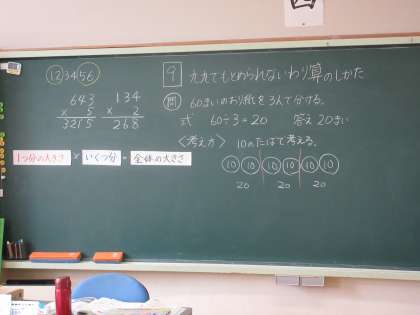 ⑫34㊺
643
× 5
3215
134
× 2
268
1つ分の大きさ × いくつ分 = 全体の大きさ
9 九九でもとめられないわり算のしかた
問 60まいのおり紙を3人で分ける。
式 60÷3=20 答え 20まい
〈考え方〉 10のたばで考える。
10 10 10 10 10 10
20 20 20